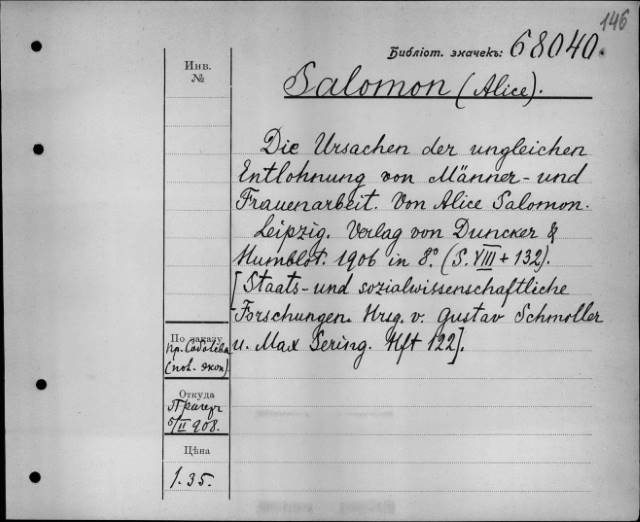 146
Библіот. значекъ: 68040.
Инв.
№
Salomon (Alice).
Die Ursachen der ungleichen
Entlohnung von Männer- und
Frauenarbeit. Von Alice Salomon.
Leipzig. Verlag von Duncker &
Humblot. 1906 in 8.° (S. VIII + 132).
[Staats- und sozialwissenschaftliche
Forschungen. Hrsg. v. Gustav Schmoller
u. Max Sering. Hft 122].
По заказу
пр. Соболева
(пол. экон)
Откуда
Прагеръ
5/II 908.
Цѣна
1.35.